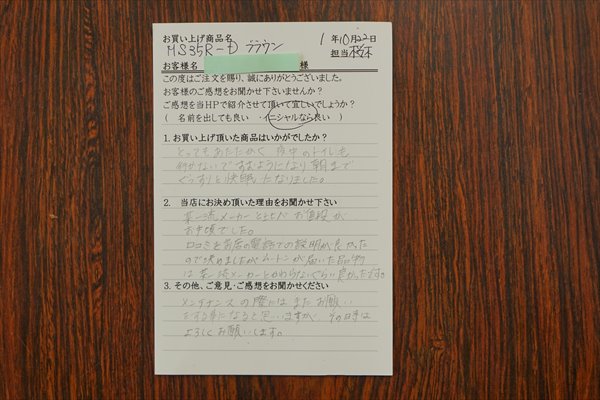 お買い上げ商品名
MS35R-D ブラウン
1年10月22日
担当
お客様名 様
この度はご注文を賜り、誠にありがとうございました。
お客様のご感想をお聞かせ下さいませんか？
ご感想を当HPで紹介させて頂いて宜しいでしょうか？
( 名前を出しても良い ・イニシャルなら良い )
1. お買い上げ頂いた商品はいかがでしたか？
とってもあたたかく 夜中のトイレも
行かないですむようになり 朝まで
ぐっすりと快眠になりました。
2. 当店にお決め頂いた理由をお聞かせ下さい
某一流メーカーと比べ お値段が
お手頃でした。
口コミとお店の電話での説明が良かった
ので決めましたが ムートンが届いた品物
は某一流メーカーとかわらないぐらい良かったです。
3. その他、ご意見・ご感想をお聞かせください
メンテナンスの際には またお願い
をする事になると思いますが その時は
よろしくお願いします。